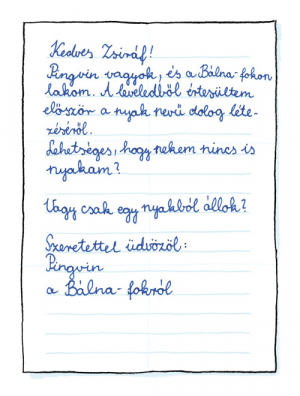 Kedves Zsiráf!
Pingvin vagyok, és a Bálna-fokon
lakom. A leveledből értesültem
először a nyak nevű dolog léte-
zéséről.
Lehetséges, hogy nekem nincs is
nyakam?
Vagy csak egy nyakból állok?
Szeretettel üdvözöl:
Pingvin
a Bálna-fokról